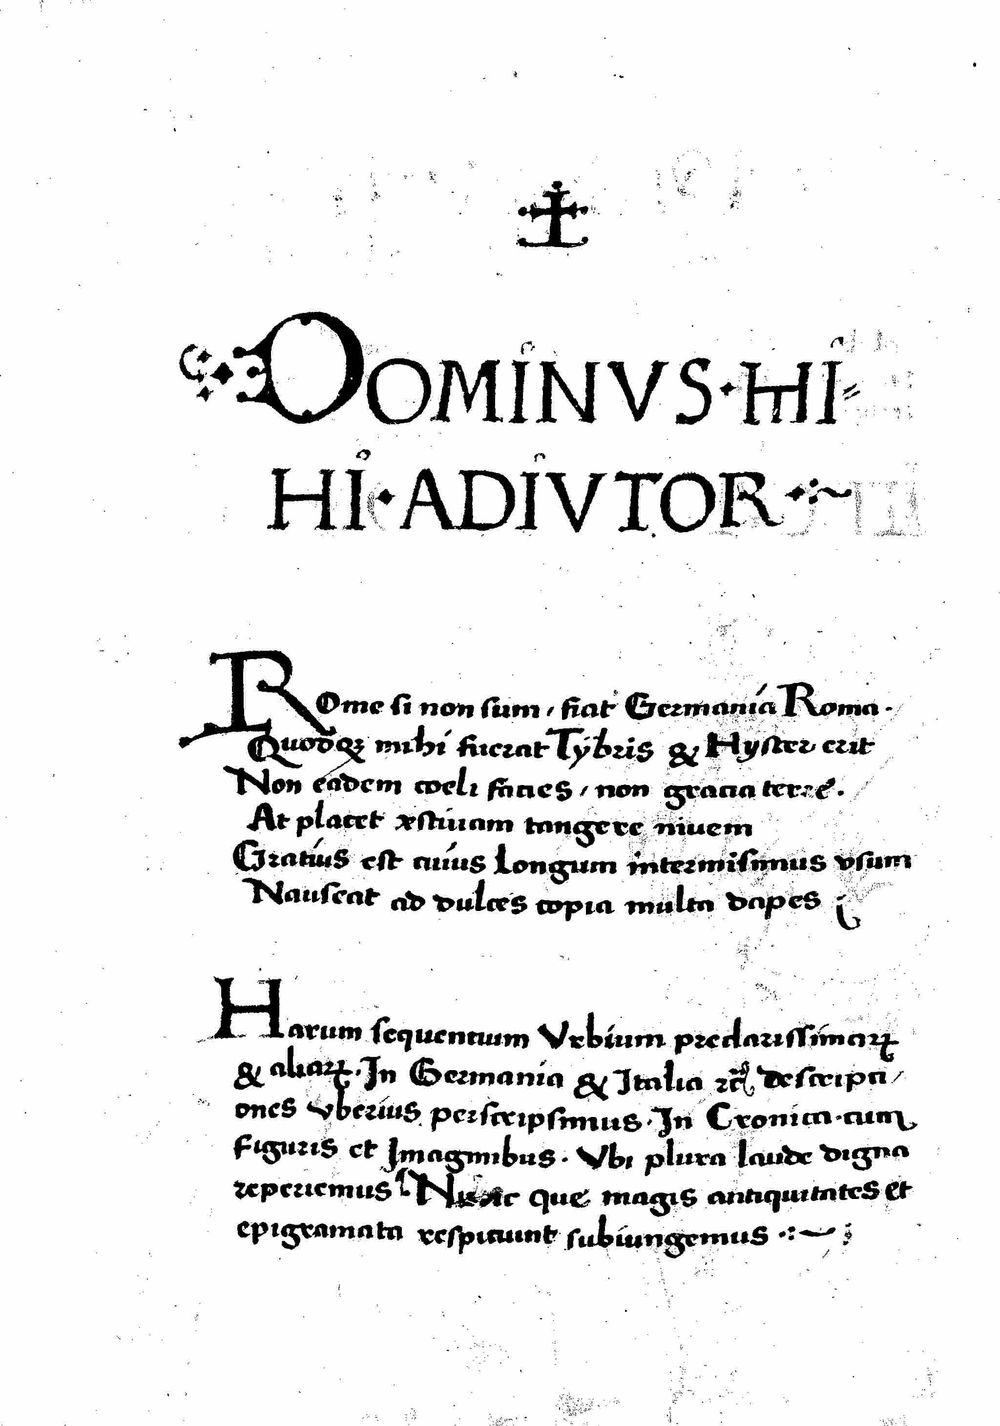 DOMINVS · MI=
HI · ADIVTOR ·:~
ROme si non sum / fiat Germania Roma ·
Quodqꝫ mihi fuerat Tybris & Hyster erit
Non eadem coeli facies / non gracia terre ·
At placet estiuam tangere niuem
Gratius est cuius longum intermisimus vsum
Nauseat ad dulces copia multa dapes
Harum sequentium Vrbium preclarissimaꝝ
& aliaꝝ · In Germania & Italia descripti/
ones vberius perscripsimus · In Cronica · cum
figuris et Imaginibus · Vbi plura laude digna
reperiemus Nunc que magis antiquitates et
epigramata respitiunt subiungemus ·:~